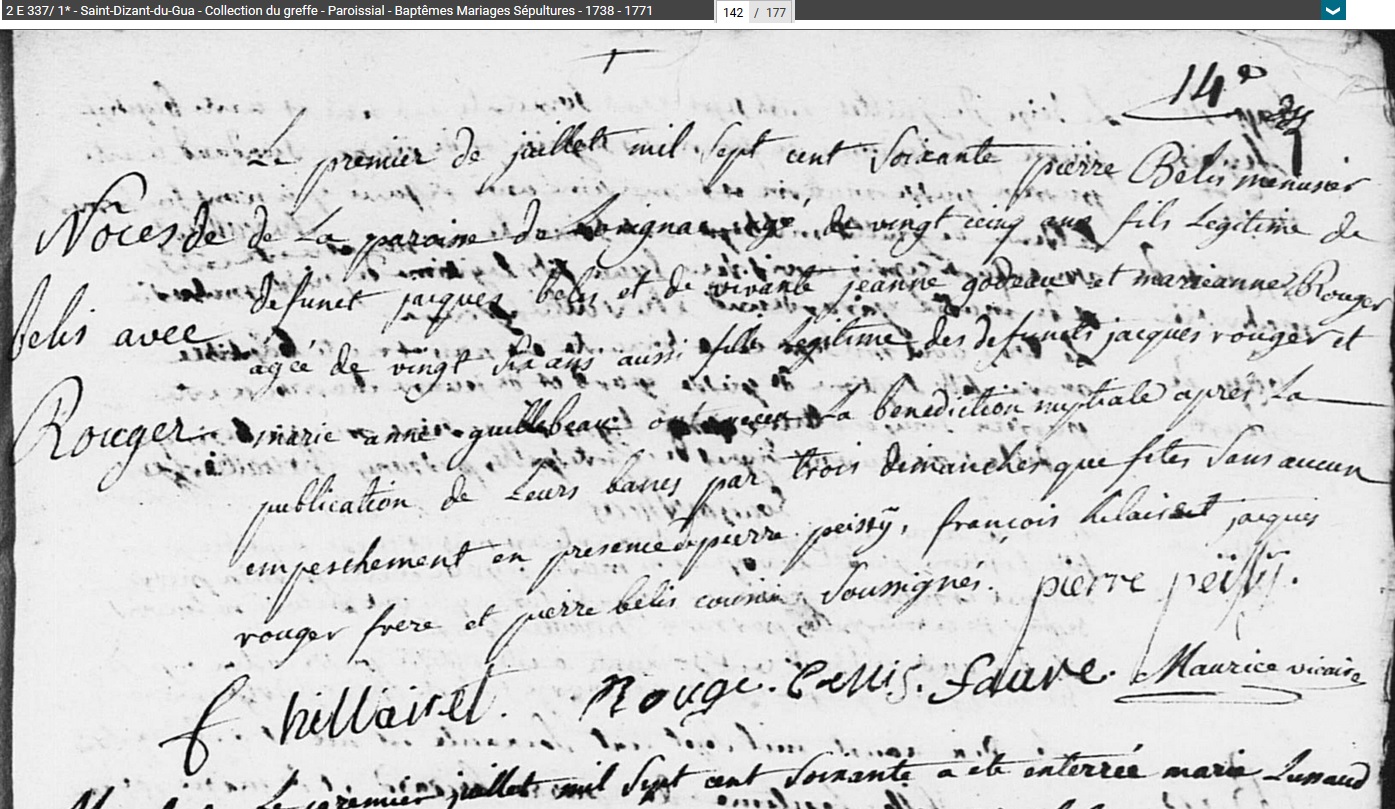 2 E 337/ 1* - Saint-Dizant-du-Gua - Collection du greffe - Paroissial - Baptêmes Mariages Sépultures - 1738 - 1771
142 / 177
14e
Le premier de juillet mil sept cent soixante pierre Bélis menusier
Noces de
de La paroisse de Lorignac agé de vingt cinq ans fils Légitime de
defunct jacques belis et de vivante jeanne godeau et marieanne Rouger
belis avec
agée de vingt six ans aussi fille Légitime des defuncts jacques rouger et
Rouger
marie anne guillebeau ont receu La benediction nuptiale après La
publication de Leurs banes par trois dimanches que fêtes sans aucun
empeschement en presence de pierre peissÿ, françois hilairet jacques
rouger frere et pierre bélis cousin Soussignés. pierre peissÿ.
f hillairet. Rouge. Bellis. fauve. Maurice vicaire
Le premier juillet mil sept cent soixante a été enterrée marie Lussaud